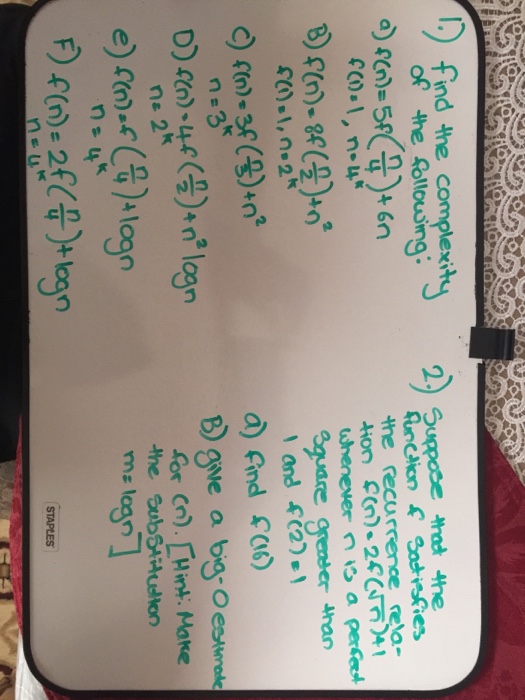 1.) find the complexity
of the following:
a) f(n) = 5f(n/4) + 6n
f(1) = 1, n = 4^k
B) f(n) = 8f(n/2) + n²
f(1) = 1, n = 2^k
c) f(n) = 3f(n/3) + n²
n = 3^k
D) f(n) = 4f(n/2) + n² logn
n = 2^k
e) f(n) = f(n/4) + logn
n = 4^k
F) f(n) = 2f(n/4) + logn
n = 4^k
2.) Suppose that the
function f satisfies
the recurrence rela-
tion f(n) = 2f(√n) + 1
whenever n is a perfect
square greater than
1 and f(2) = 1
a) find f(16)
B) give a big-O estimate
for (n). [Hint: Make
the substitution
m = logn]
STAPLES